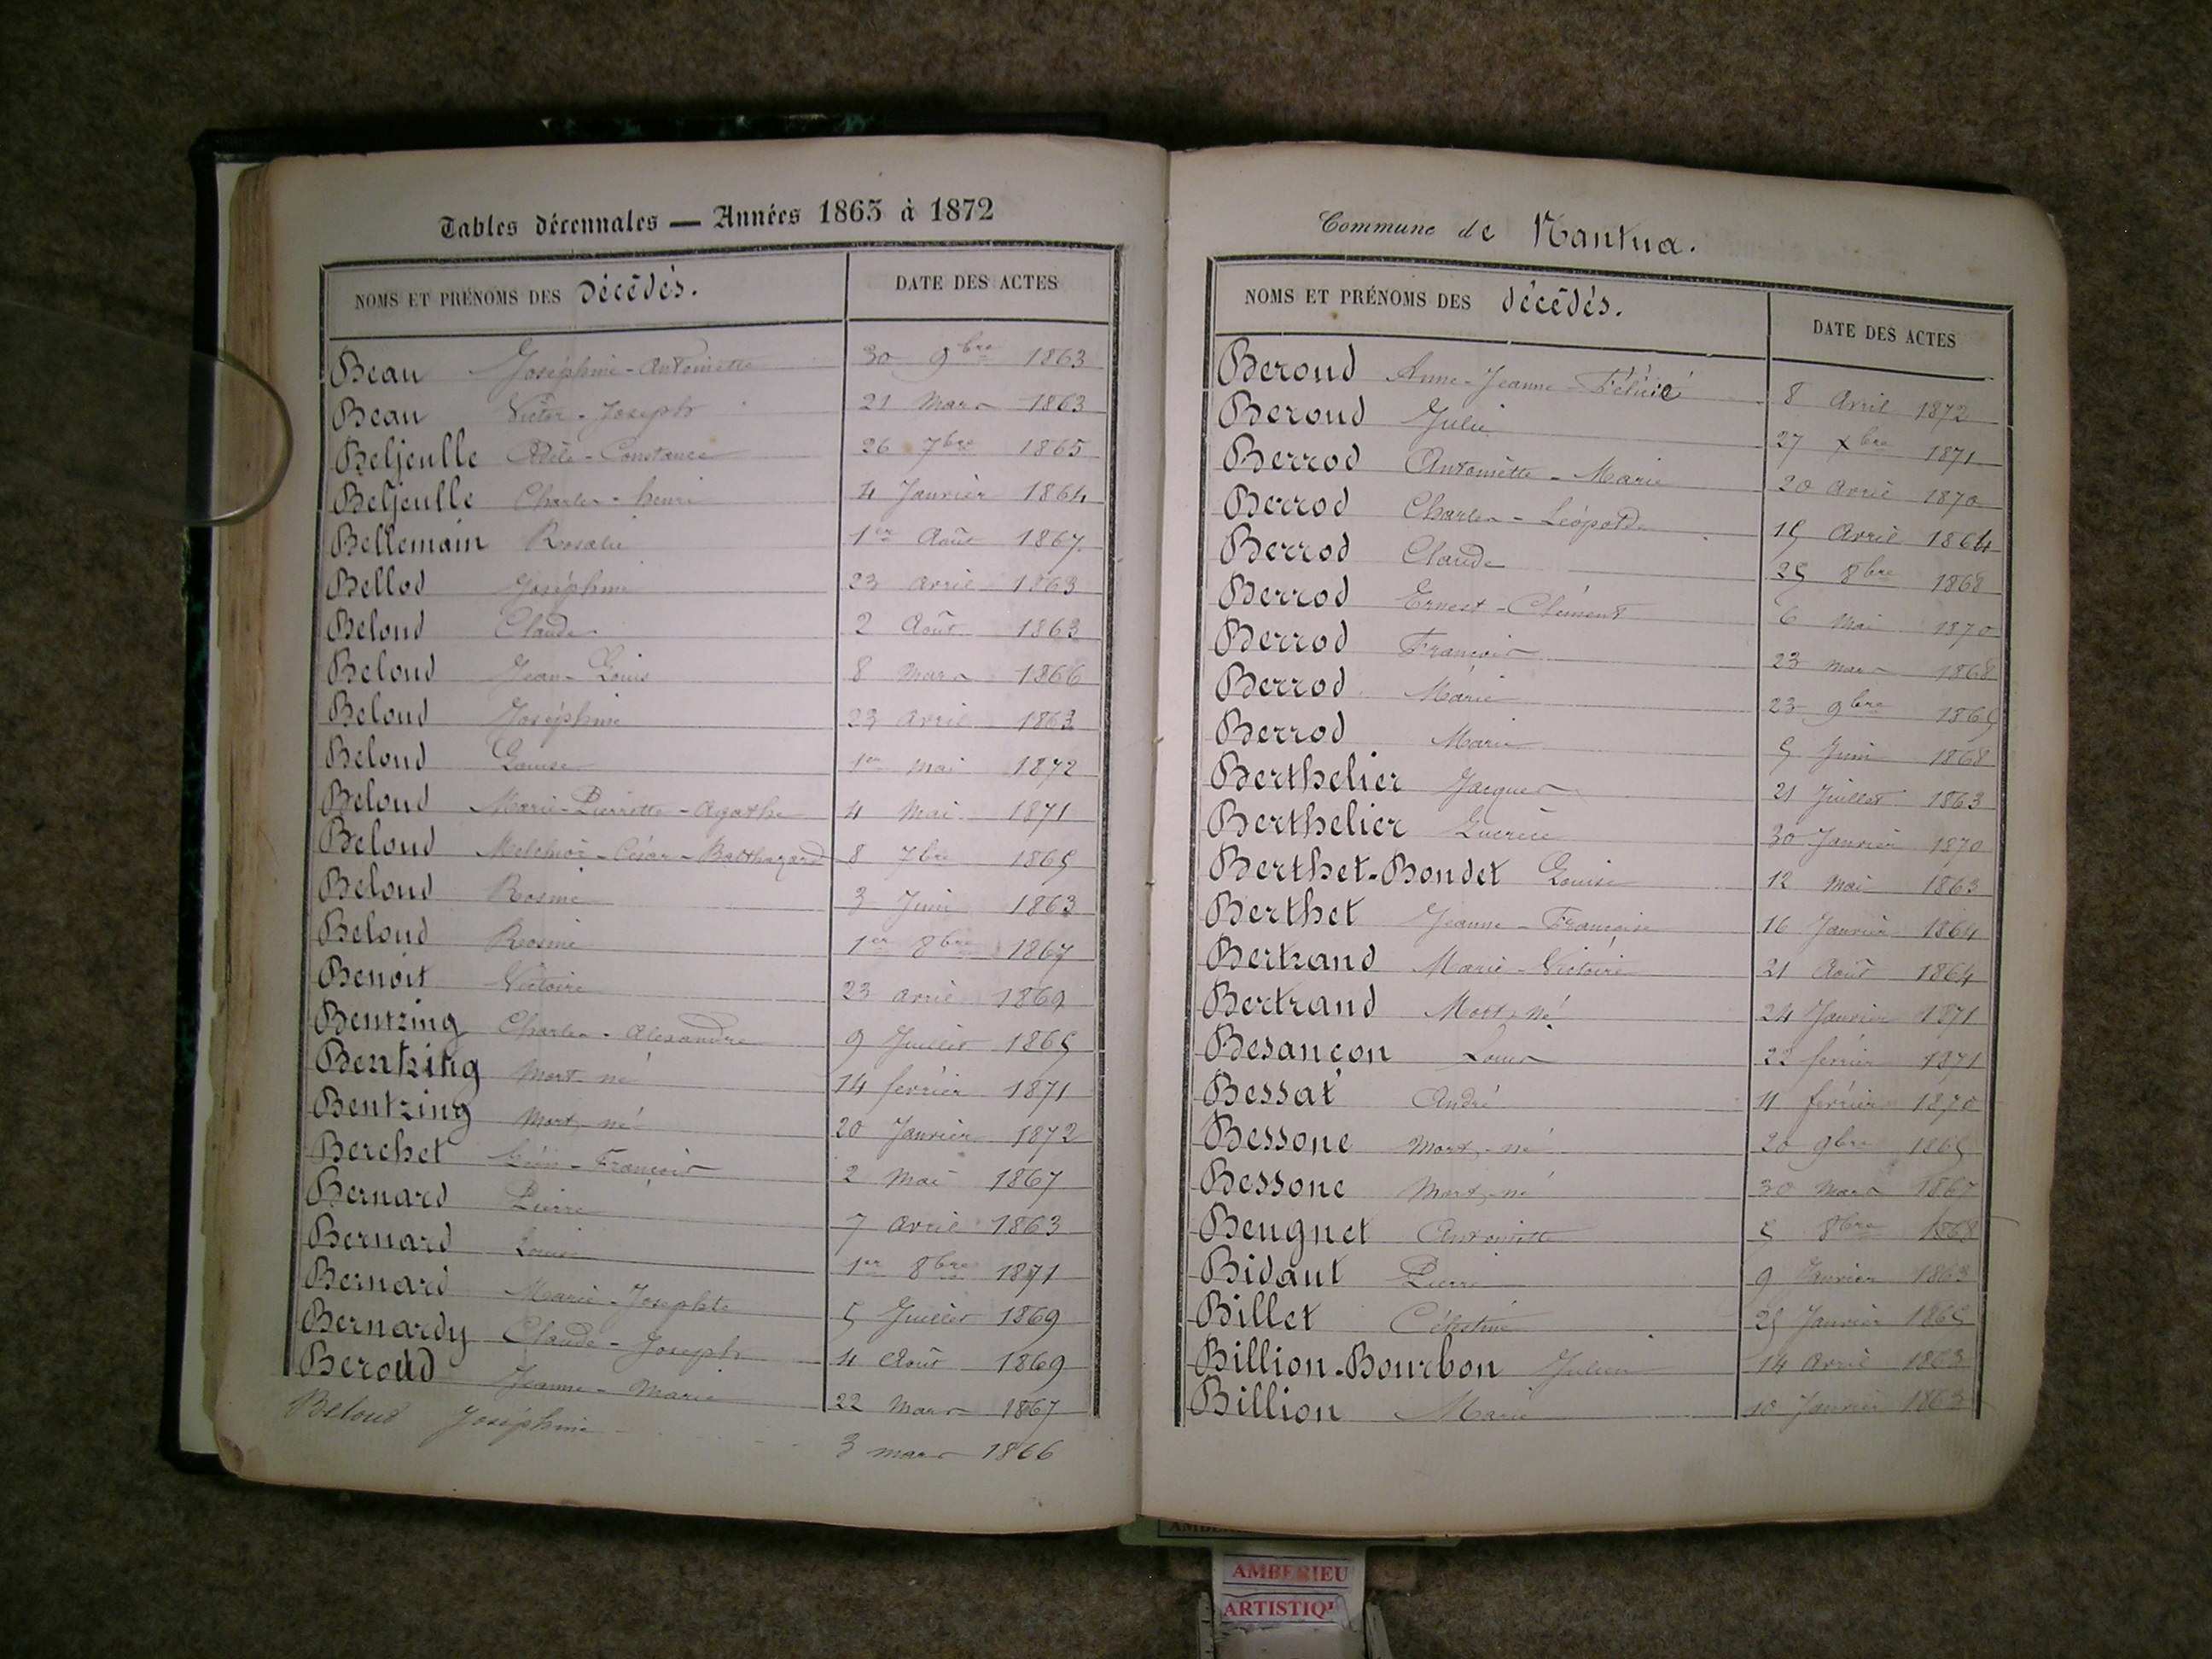 Tables décennales — Années 1863 à 1872
NOMS ET PRÉNOMS DES décédés. DATE DES ACTES
Beau Joséphine-Antoinette 30 9bre 1863
Beau Victor-Joseph 21 Mars 1863
Beljeulle Adèle-Constance 26 7bre 1865
Beljeulle Charles-henri 4 Janvier 1864
Bellemain Rosalie 1er Août 1867
Bellod Joséphine 23 avril 1863
Beloud Claude 2 Août 1863
Beloud Jean-Louis 8 Mars 1866
Beloud Joséphine 23 avril 1863
Beloud Louise 1er mai 1872
Beloud Marie-Pierrette-Agathe 4 Mai 1871
Beloud Melchior-César-Balthazard 8 7bre 1865
Beloud Rosine 3 Juin 1863
Beloud Rosine 1er 8bre 1867
Benoit Victoire 23 avril 1869
Bentzing Charles-Alexandre 9 Juillet 1865
Bentzing Mort-né 14 février 1871
Bentzing Mort-né 20 Janvier 1872
Berchet Léon-François 2 Mai 1867
Bernard Pierre 7 avril 1863
Bernard Louise 1er 8bre 1871
Bernard Marie-Josephte 5 Juillet 1869
Bernardy Claude-Joseph 4 Août 1869
Beroud Jeanne-Marie 22 Mars 1867
Beloud Joséphine 3 mars 1866
Commune de Nantua.
NOMS ET PRÉNOMS DES décédés. DATE DES ACTES
Beroud Anne-Jeanne-Félicité 8 Avril 1872
Beroud Julie 27 Xbre 1871
Berrod Antoinette-Marie 20 avril 1870
Berrod Charles-Léopold 15 Avril 1864
Berrod Claude 25 8bre 1868
Berrod Ernest-Clément 6 Mai 1870
Berrod François 23 mars 1868
Berrod Marie 23 9bre 1865
Berrod Marie 5 Juin 1868
Berthelier Jacques 21 Juillet 1863
Berthelier Lucrèce 30 Janvier 1870
Berthet-Bondet Louise 12 Mai 1863
Berthet Jeanne-Françoise 16 Janvier 1864
Bertrand Marie-Victoire 21 Août 1864
Bertrand Mort-né 24 Janvier 1871
Besançon Louis 22 février 1871
Bessat André 11 février 1870
Bessone Mort-né 20 9bre 1865
Bessone Mort-né 30 Mars 1867
Beugnet Antoinette 5 8bre 1868
Bidaut Pierre 9 Janvier 1863
Billet Célestine 25 Janvier 1865
Billion-Bourbon Julien 14 Avril 1863
Billion Marie 10 Janvier 1863
AMBERIEU
ARTISTIQ